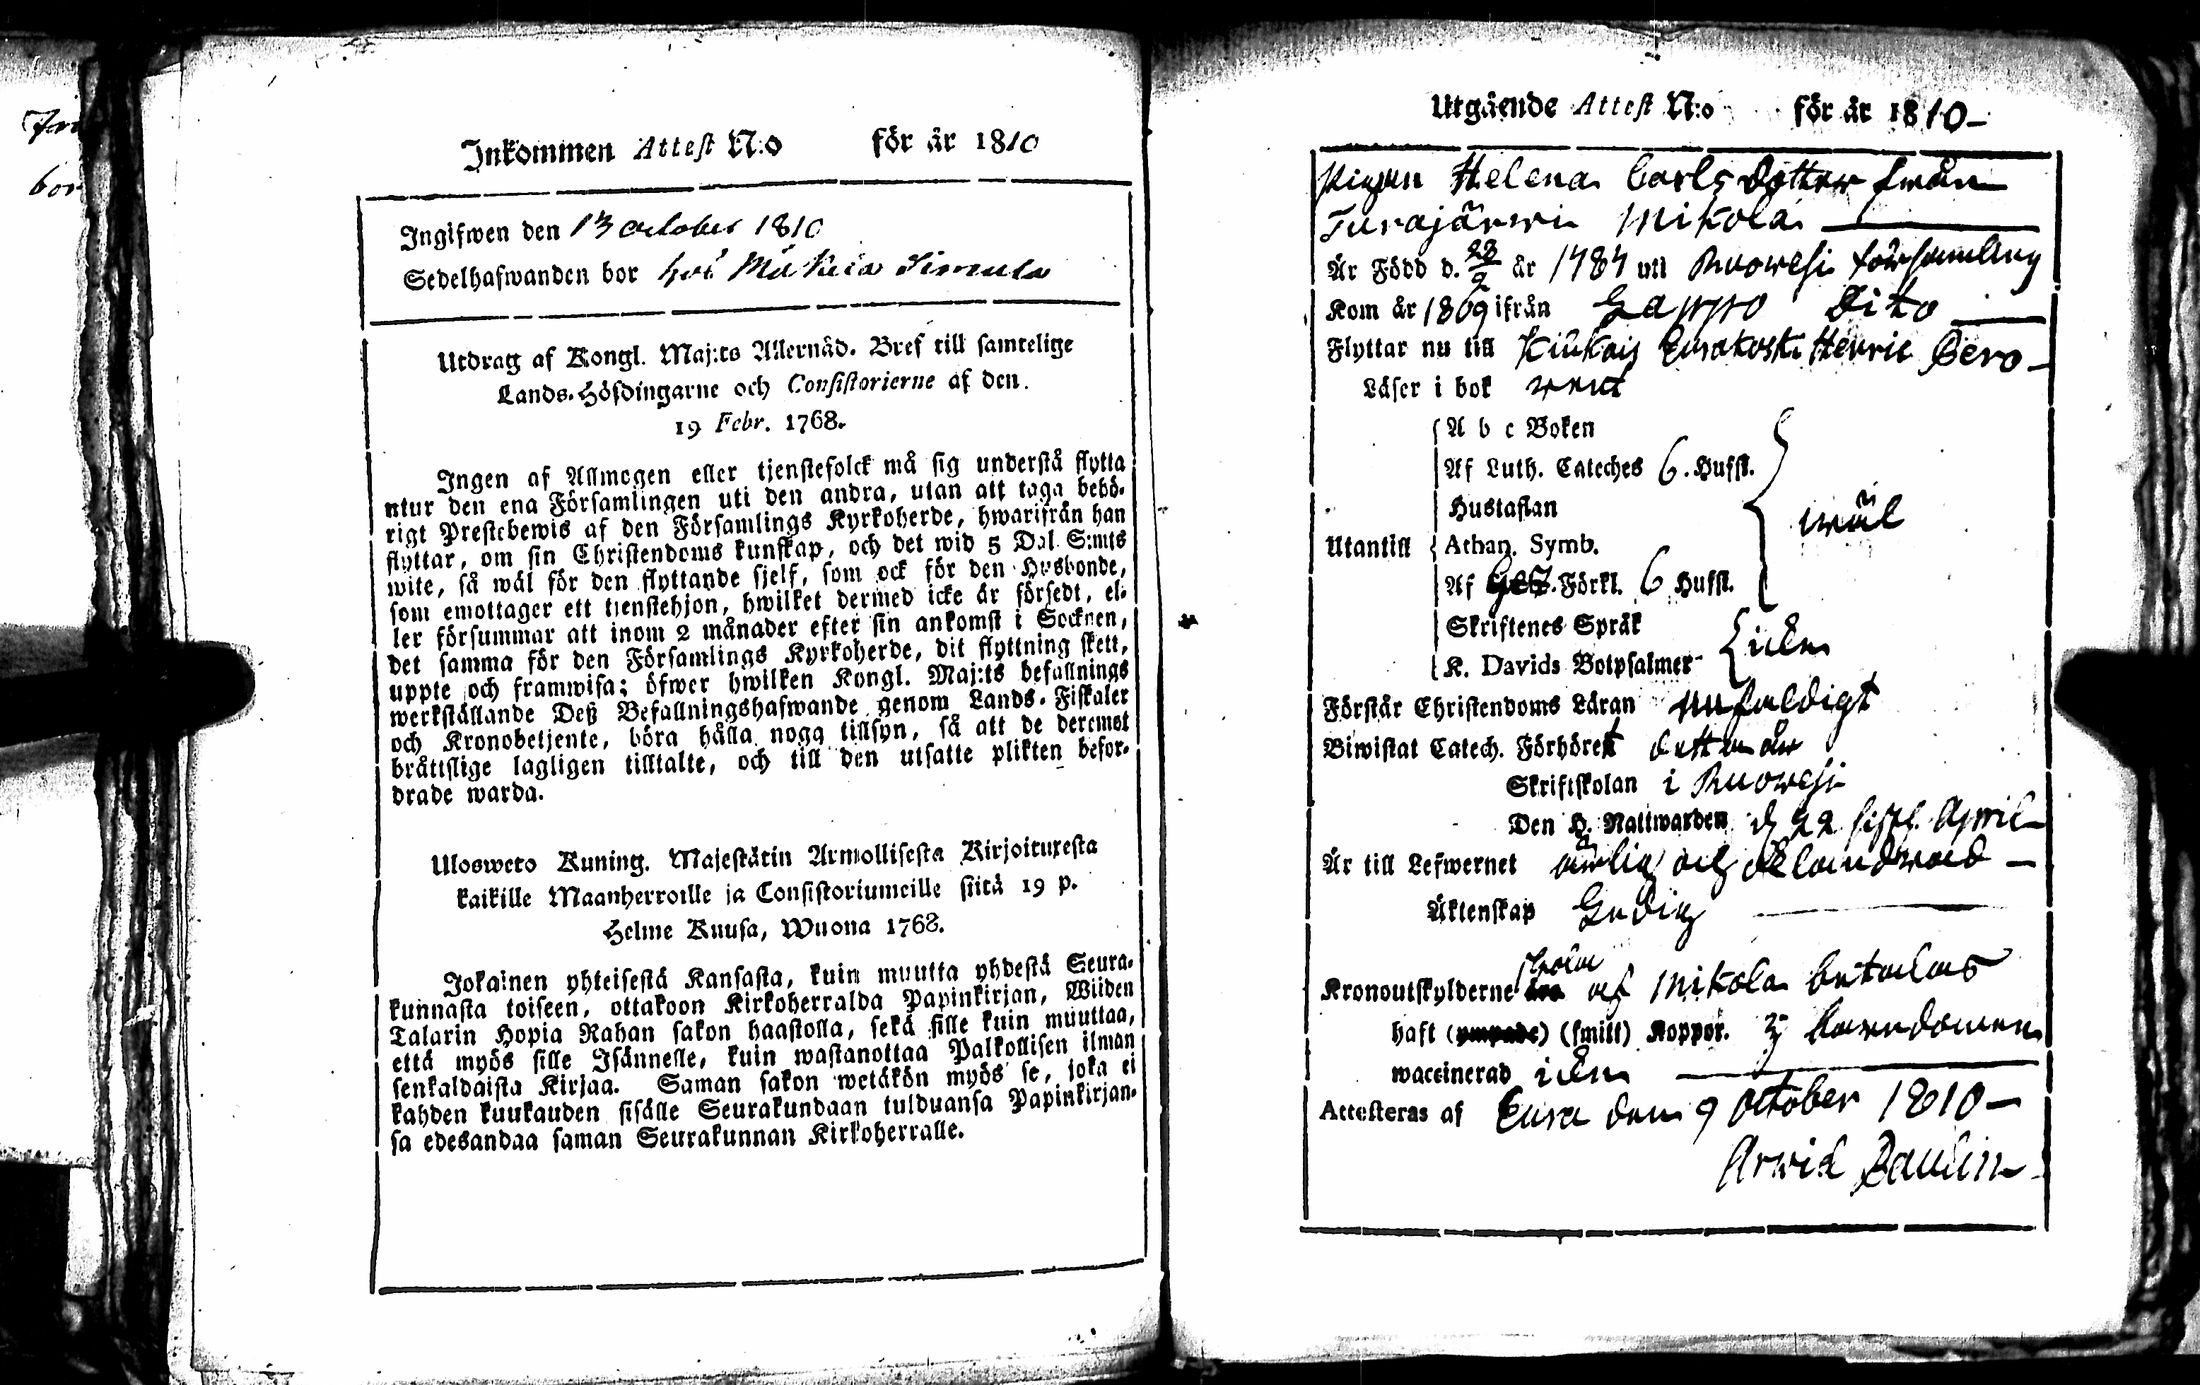 Inkommen Attest N:o för år 1810
Ingifwen den 13 october 1810
Sedelhafwanden bor hos Simula
Utdrag af Kongl. Maj:ts Allernåd. Bref till samtelige
Lands-Höfdingarne och Consistorierne af den
19 Febr. 1768.
Ingen af Allmogen eller tjenstefolck må sig understå flytta
utur den ena Församlingen uti den andra, utan att taga behö-
rigt Prestebewis af den Församlings Kyrkoherde, hwarifrån han
flyttar, om sin Christendoms kunskap, och det wid 5 Dal. S:mts
wite, så wäl för den flyttande sjelf, som ock för den Husbonde,
som emottager ett tjenstehjon, hwilket dermed icke är försedt, el-
ler försummar att inom 2 månader efter sin ankomst i Socknen,
det samma för den Församlings Kyrkoherde, dit flyttning skett,
uppte och framwisa; öfwer hwilken Kongl. Maj:ts befallnings
werkställande Deß Befallningshafwande genom Lands-Fiskaler
och Kronobetjente, böra hålla noga tillsyn, så att de deremot
bråttslige lagligen tilltalte, och till den utsatte plikten befor-
drade warda.
Ulosweto Kuning. Majestätin Armollisesta Kirjoituxesta
kaikille Maanherroille ja Consistoriumeille siitä 19 p.
Helme Kuusa, Wuona 1768.
Jokainen yhteisestä Kansasta, kuin muutta yhdestä Seura-
kunnasta toiseen, ottakoon Kirkoherralda Papinkirjan, Wiiden
Talarin Hopia Rahan sakon haastolla, sekä sille kuin muuttaa,
että myös sille Isännelle, kuin wastanottaa Palkollisen ilman
senkaldaista Kirjaa. Saman sakon wetäkön myös se, joka ei
kahden kuukauden sisälle Seurakundaan tulduansa Papinkirjan-
sa edesandaa saman Seurakunnan Kirkoherralle.
Utgående Attest N:o för år 1810
Pigan Helena Carlsdotter från
Turajärwi Mikola
Är Född d. 28/2 år 1784 uti Ruowesi församling
Kom år 1809 ifrån Lappo dito
Flyttar nu till Kiukais Eurakoski Henric Gero
Läser i bok rent
A b c Boken
Af Luth. Cateches 6. Hufst.
Hustaflan
Utantill Athan. Symb. wäl
Af Förkl. 6 Hufst.
Skriftenes Språk
K. Davids Botpsalmer iden
Förstår Christendoms Läran enfaldigt
Biwistat Catech. Förhöret detta år
Skriftskolan i Ruowesi
Den H. Nattwarden d 22 sistl. April
Är till Lefwernet ärlig och
Äktenskap Ledig
Kronoutskylderne skola af Mikola betalas
haft (smitt) Koppor. i barndomen
waccinerad iden
Attesteras af Eura den 9 October 1810
Arwid Paulin